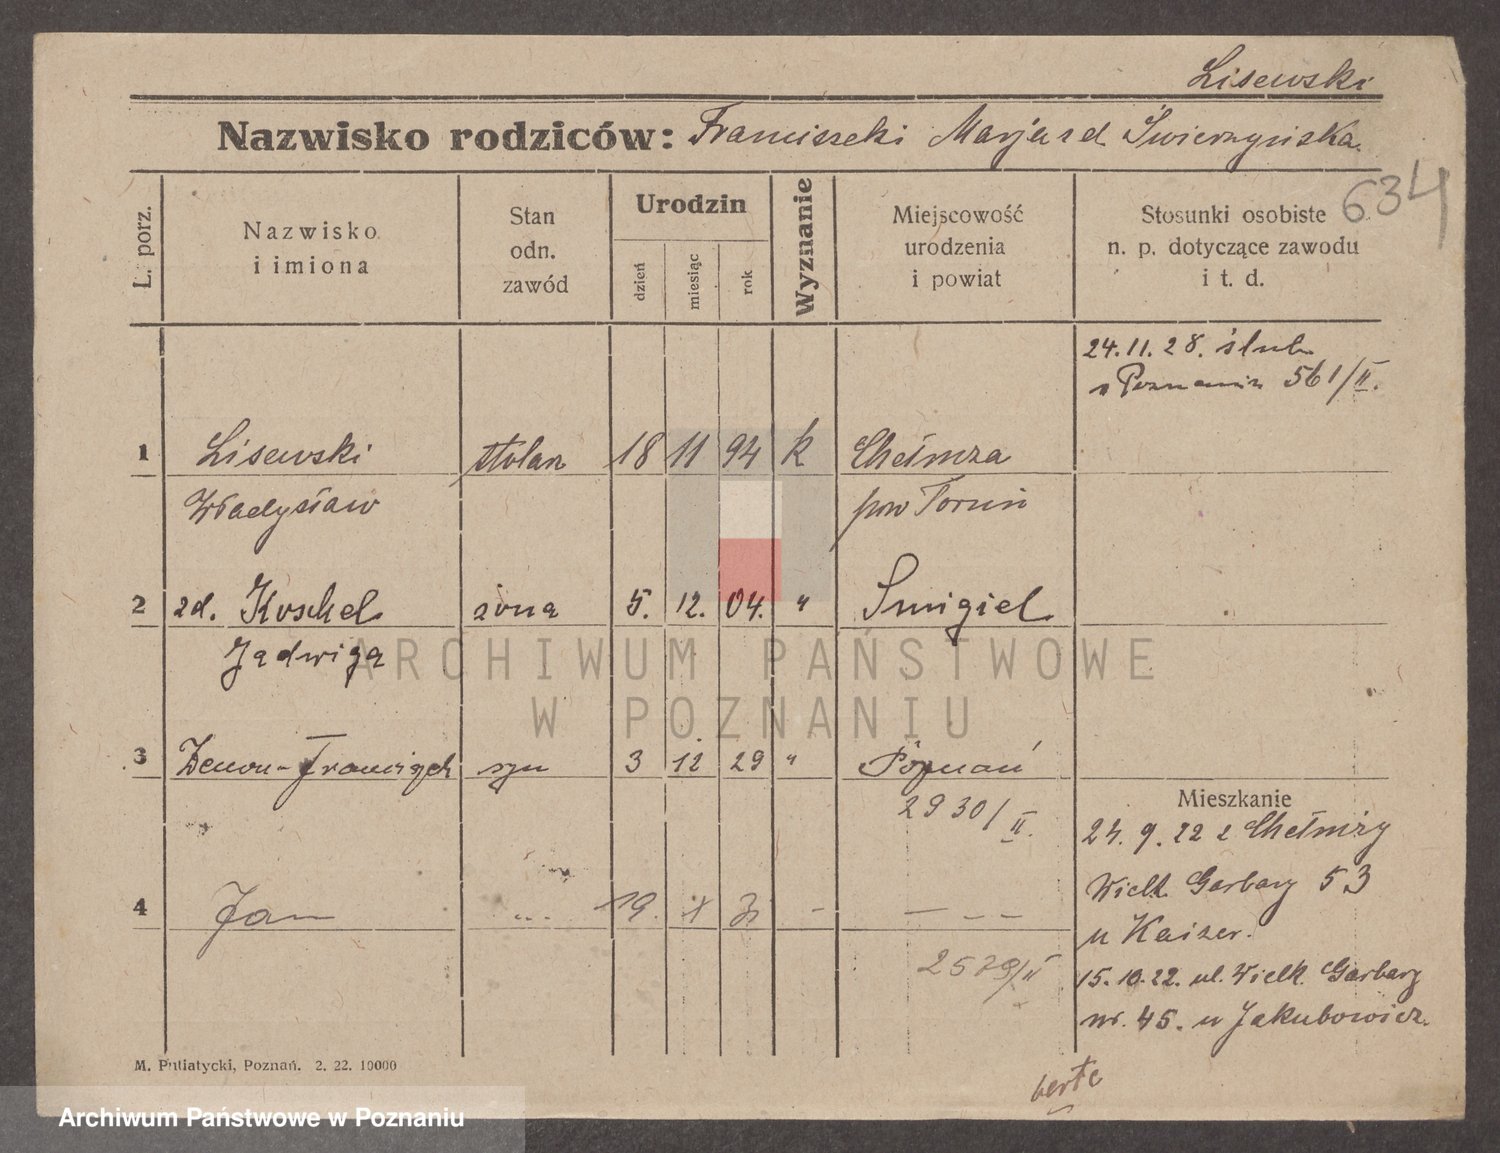 Lisewski
Nazwisko rodziców: Franciszek i Marja z d. Świerzyńska
634
L. porz.
Nazwisko
i imiona
Stan
odn.
zawód
Urodzin
dzień
miesiąc
rok
Wyznanie
Miejscowość
urodzenia
i powiat
Stosunki osobiste
n. p. dotyczące zawodu
i t. d.
24.11.28. ślub
w Poznaniu 561/II.
1 Lisewski stolarz 18 11 94 k Chełmża
Władysław pow Toruń
2 zd. Koschel żona 5. 12. 04. " Śmigiel
Jadwiga
3 Zenon-Franciszek syn 3 12 29 " Poznań
2930/II.
Mieszkanie
24. 9. 22 z Chełmży
Wielk Garbary 53
u Kaiser.
4 Jan 19. X 31 - - - -
2579/II
15.10.22. ul. Wielk. Garbary
nr. 45. u Jakubowicz.
M. Putiatycki, Poznań. 2. 22. 10000
verte
ARCHIWUM PAŃSTWOWE
W POZNANIU
Archiwum Państwowe w Poznaniu